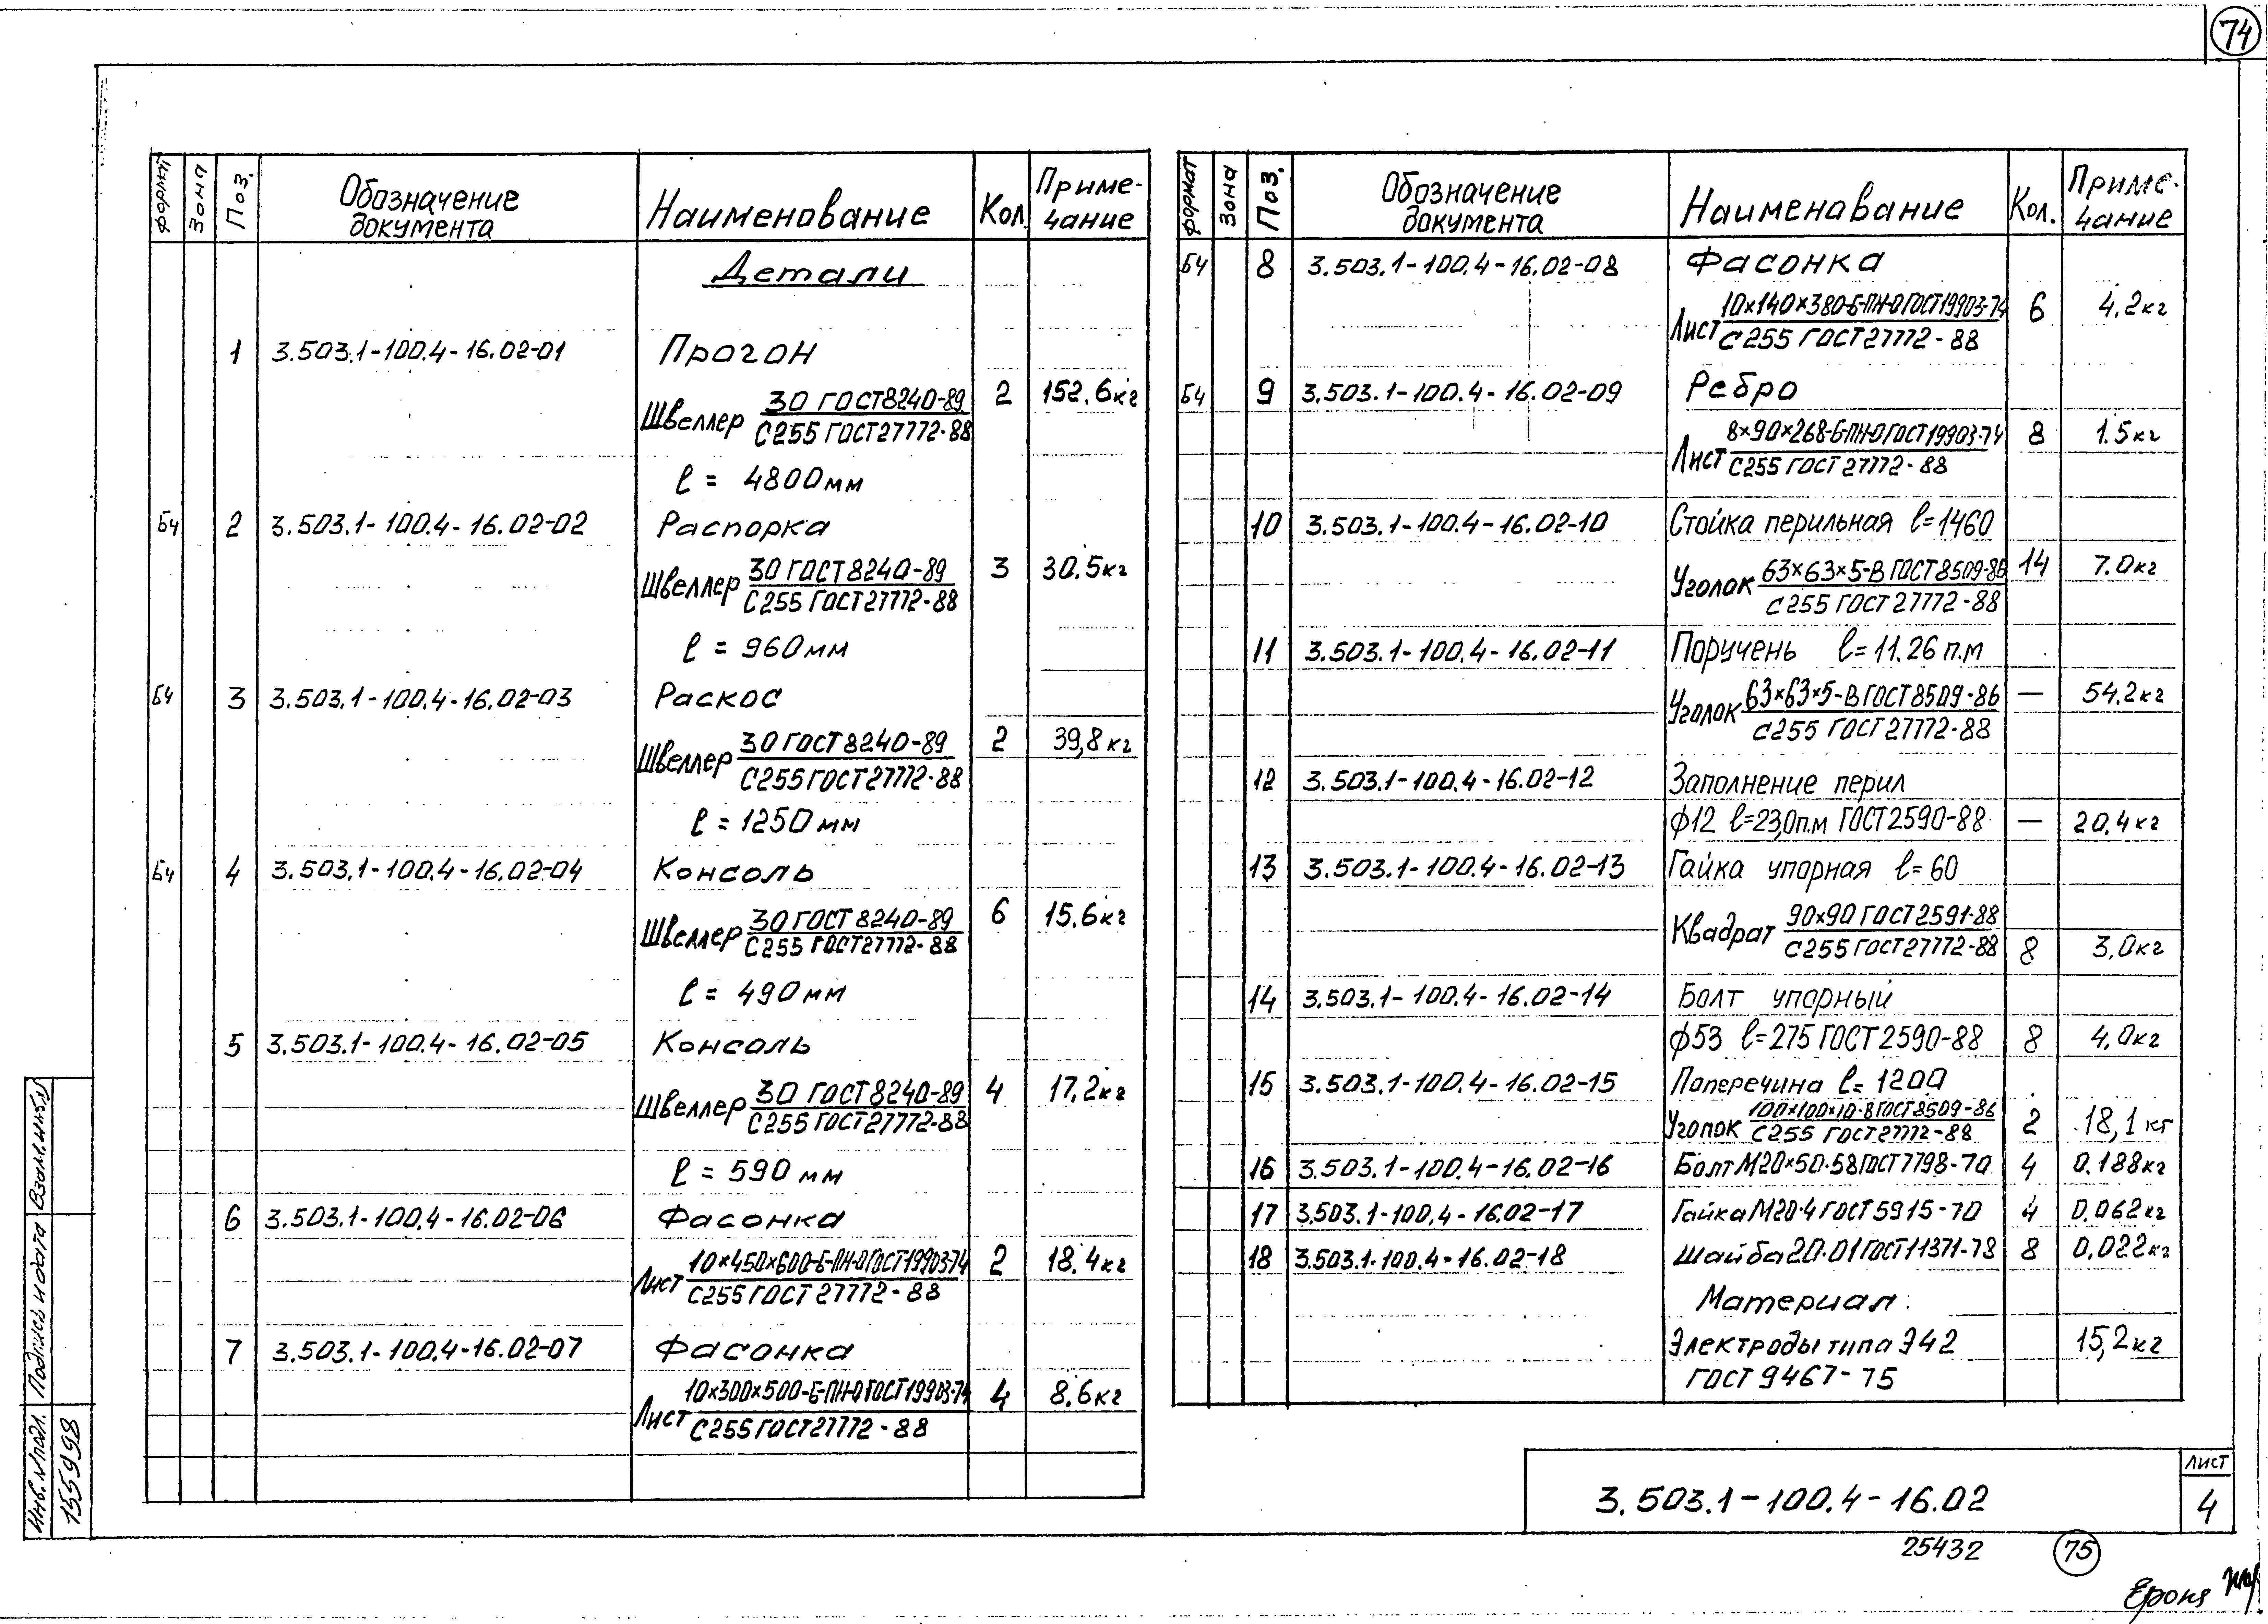 74
формат Зона Поз. Обозначение документа Наименование Кол. Приме-чание
Детали
1 3.503.1-100.4-16.02-01 Прогон
Швеллер 30 ГОСТ8240-89 2 152.6кг
С255 ГОСТ27772-88
ℓ = 4800мм
БЧ 2 3.503.1-100.4-16.02-02 Распорка
Швеллер 30 ГОСТ8240-89 3 30.5кг
С255 ГОСТ27772-88
ℓ = 960мм
БЧ 3 3.503.1-100.4-16.02-03 Раскос
Швеллер 30 ГОСТ8240-89 2 39,8кг
С255 ГОСТ27772-88
ℓ = 1250мм
БЧ 4 3.503.1-100.4-16.02-04 Консоль
Швеллер 30 ГОСТ8240-89 6 15.6кг
С255 ГОСТ27772-88
ℓ = 490мм
5 3.503.1-100.4-16.02-05 Консоль
Швеллер 30 ГОСТ8240-89 4 17.2кг
С255 ГОСТ27772-88
ℓ = 590 мм
6 3.503.1-100.4-16.02-06 Фасонка
Лист 10×450×600-Б-ПН-О ГОСТ19903-74 2 18.4кг
С255 ГОСТ27772-88
7 3.503.1-100.4-16.02-07 Фасонка
Лист 10×300×500-Б-ПН-О ГОСТ19903-74 4 8.6кг
С255 ГОСТ27772-88
формат Зона Поз. Обозначение документа Наименавание Кол. Приме-чание
БЧ 8 3.503.1-100.4-16.02-08 Фасонка
Лист 10×140×380-Б-ПН-О ГОСТ19903-74 6 4.2кг
С255 ГОСТ27772-88
БЧ 9 3.503.1-100.4-16.02-09 Ребро
Лист 8×90×268-Б-ПН-О ГОСТ19903-74 8 1.5кг
С255 ГОСТ27772-88
10 3.503.1-100.4-16.02-10 Стойка перильная ℓ=1460
Уголок 63×63×5-В ГОСТ8509-86 14 7.0кг
С255 ГОСТ27772-88
11 3.503.1-100.4-16.02-11 Поручень ℓ=11.26 п.м
Уголок 63×63×5-В ГОСТ8509-86 — 54.2кг
С255 ГОСТ27772-88
12 3.503.1-100.4-16.02-12 Заполнение перил
ф12 ℓ=23,0п.м ГОСТ2590-88 — 20.4кг
13 3.503.1-100.4-16.02-13 Гайка упорная ℓ=60
Квадрат 90×90 ГОСТ2591-88
С255 ГОСТ27772-88 8 3.0кг
14 3.503.1-100.4-16.02-14 Болт упорный
ф53 ℓ=275 ГОСТ2590-88 8 4.0кг
15 3.503.1-100.4-16.02-15 Поперечина ℓ=1200
Уголок 100×100×10-В ГОСТ8509-86 2 18,1кг
С255 ГОСТ27772-88
16 3.503.1-100.4-16.02-16 Болт М20×50.58 ГОСТ7798-70 4 0.188кг
17 3.503.1-100.4-16.02-17 Гайка М20.4 ГОСТ5915-70 4 0.062кг
18 3.503.1-100.4-16.02-18 Шайба 20.01 ГОСТ11371-78 8 0.022кг
Материал:
Электроды типа Э42 15,2кг
ГОСТ 9467-75
Инв.№подл. Подпись и дата Взам.инв.№
155998
3.503.1-100.4-16.02
лист
4
25432 75